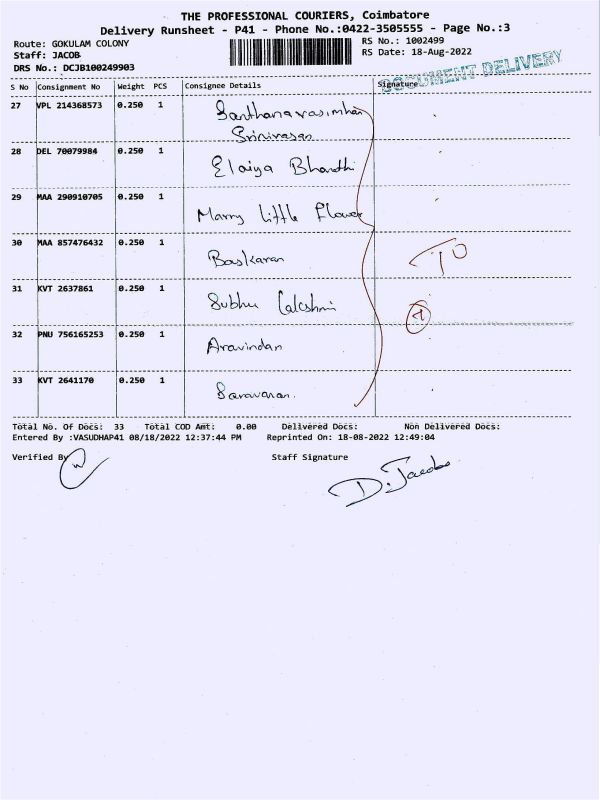 THE PROFESSIONAL COURIERS, Coimbatore
Delivery Runsheet - P41 - Phone No.:0422-3505555 - Page No.:3
Route: GOKULAM COLONY
Staff: JACOB
DRS No.: DCJB100249903
RS No.: 1002499
RS Date: 18-Aug-2022
DOCUMENT DELIVERY
S No Consignment No Weight PCS Consignee Details Signature
27 VPL 214368573 0.250 1 Santhanavasimhan
Srinivasan
28 DEL 70079984 0.250 1 Elaiya Bharathi
29 MAA 290910705 0.250 1 Marry Little Flower
30 MAA 857476432 0.250 1 Baskaran
31 KVT 2637861 0.250 1 Subhu Lakshmi
32 PNU 756165253 0.250 1 Aravindan
33 KVT 2641170 0.250 1 Saravanan.
Total No. Of Docs: 33 Total COD Amt: 0.00 Delivered Docs: Non Delivered Docs:
Entered By :VASUDHAP41 08/18/2022 12:37:44 PM Reprinted On: 18-08-2022 12:49:04
Verified By
Staff Signature
D. Jacob